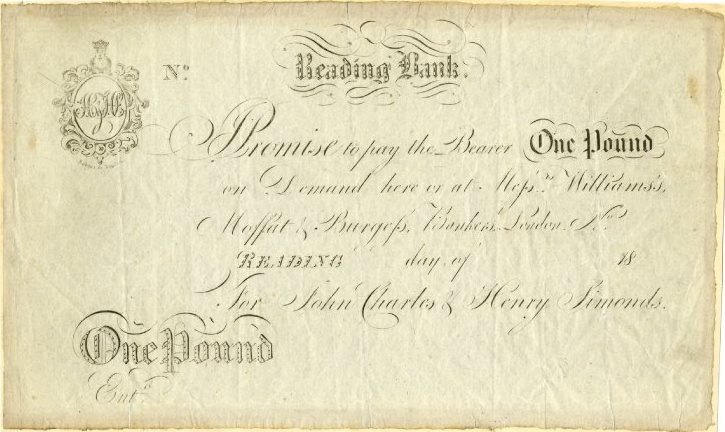 No.
Reading Bank.
I Promise to pay the Bearer One Pound
on Demand here or at Meſs.rs Williams's,
Moffat & Burgeſs, Bankers, London.
READING day of 18
For John Charles & Henry Simonds.
One Pound
Ent.d